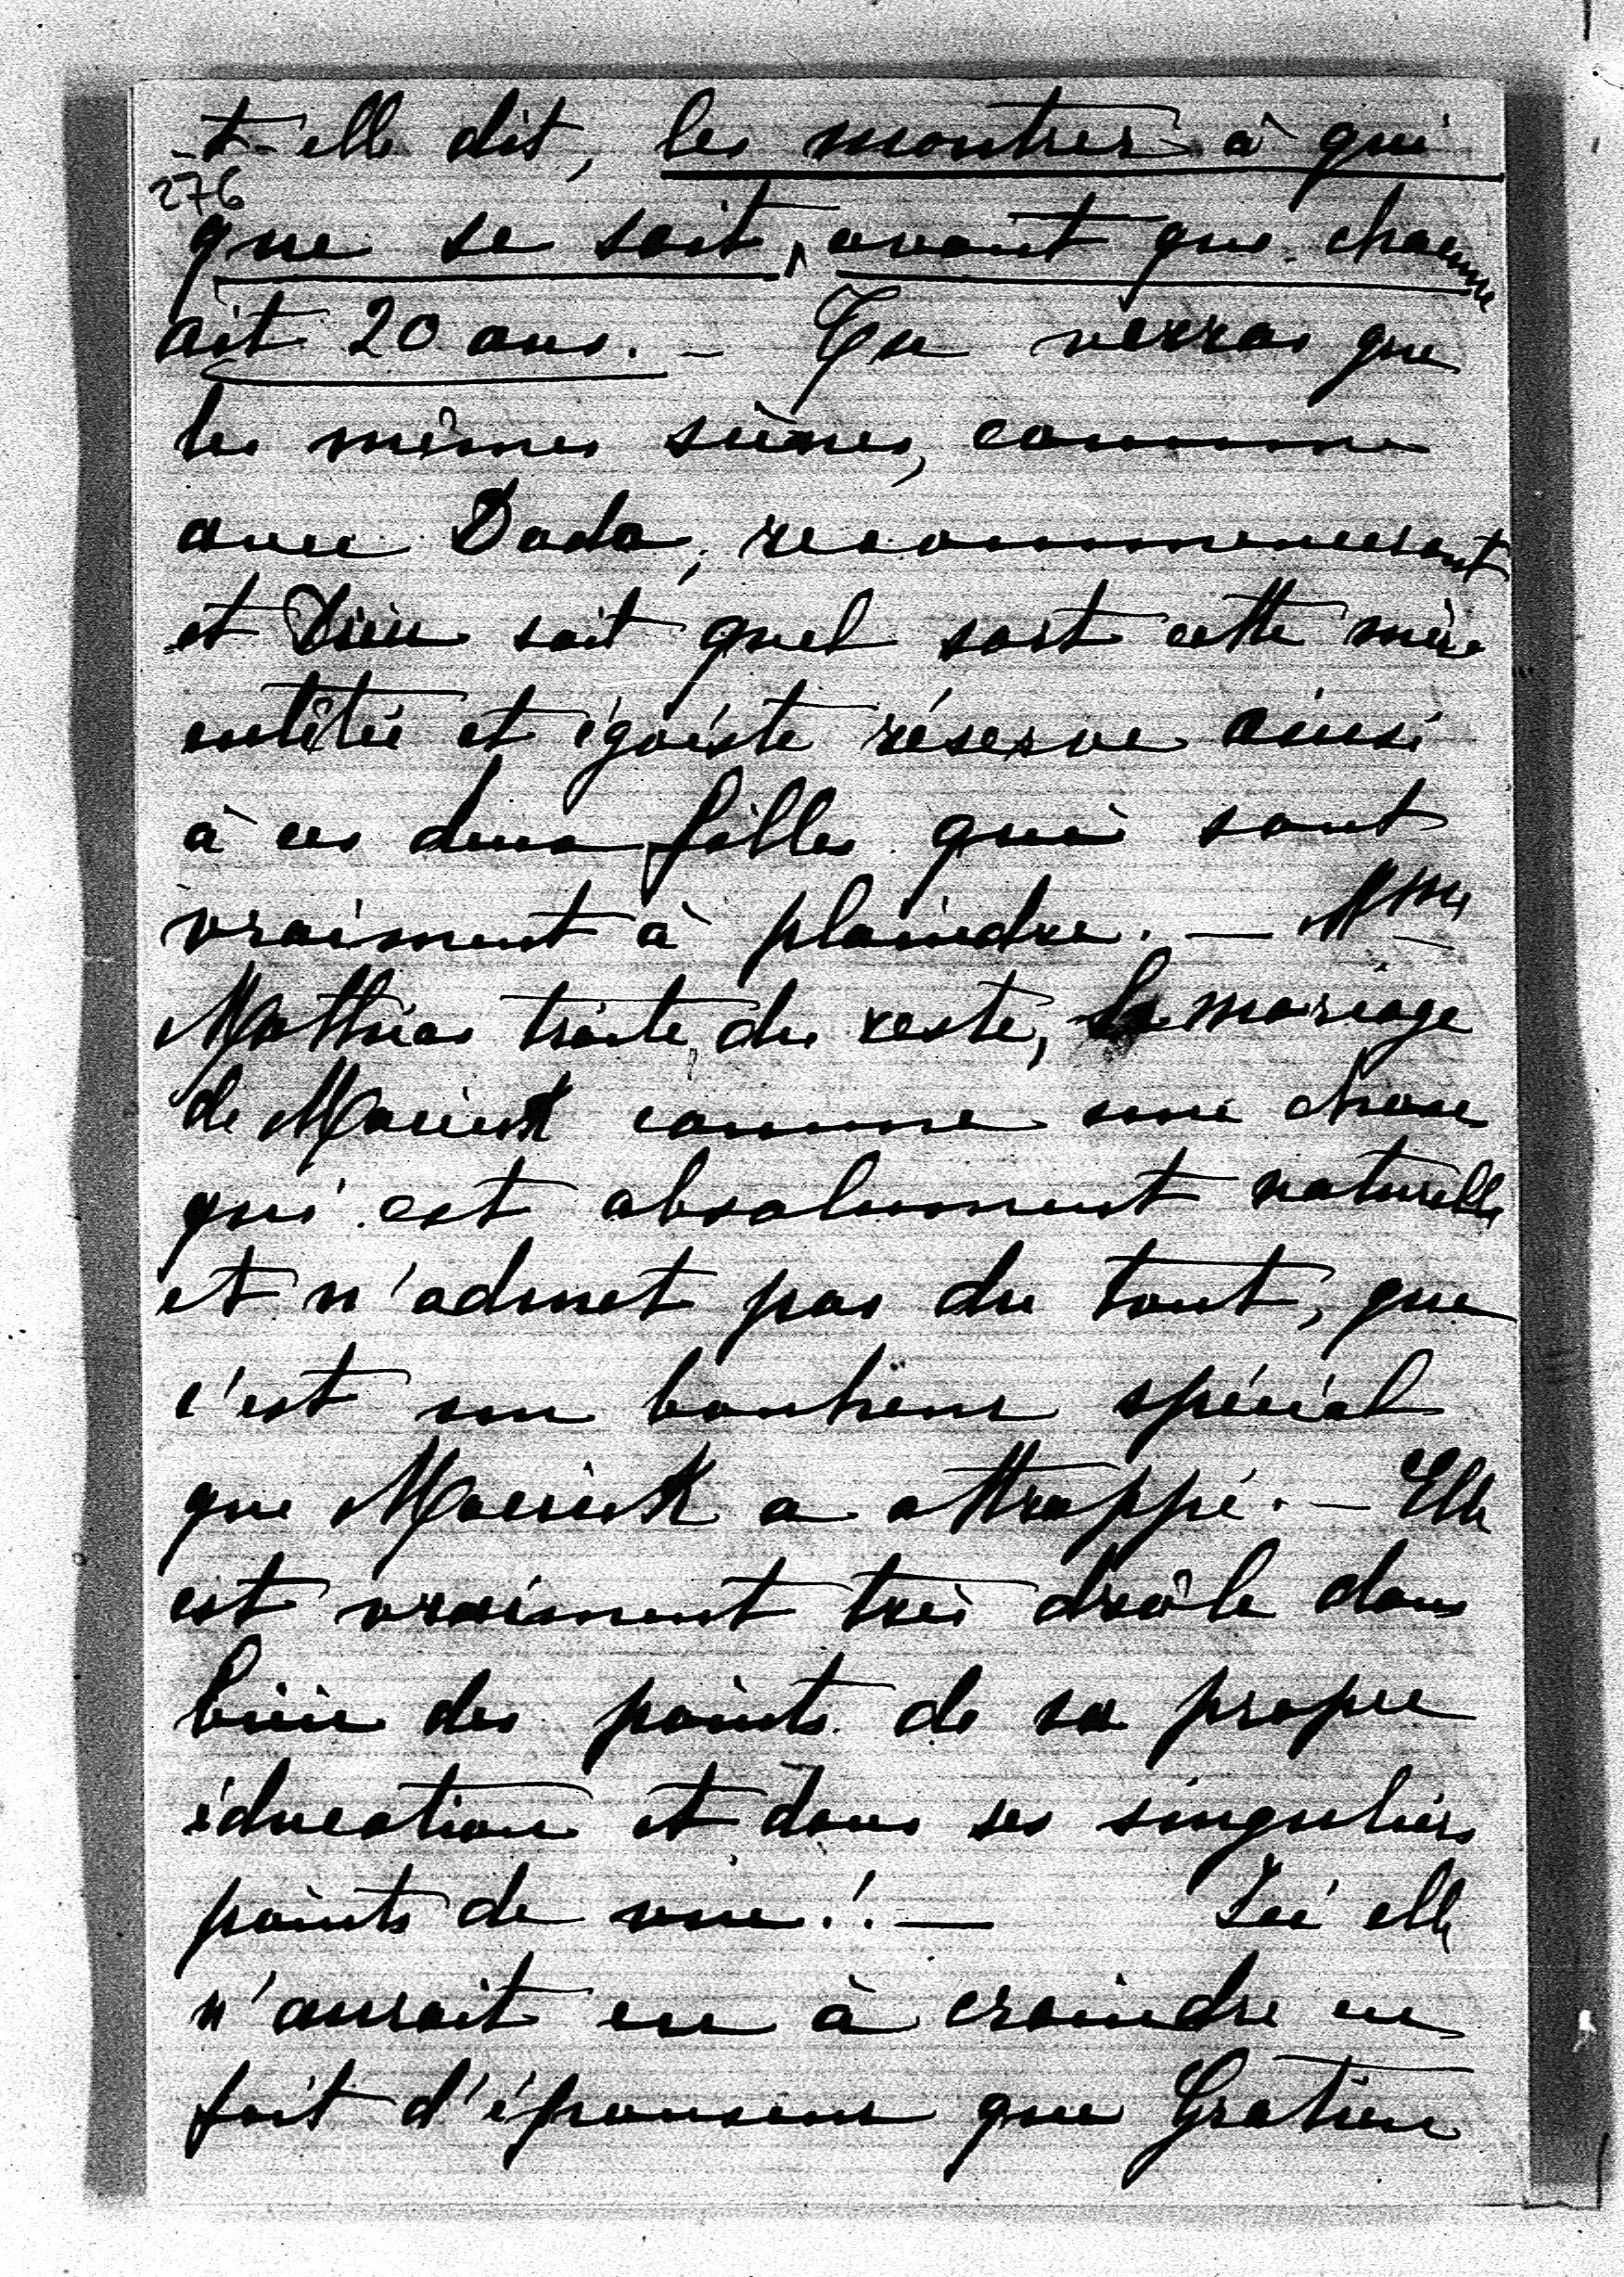 -t-elle dit, les montrer à qui
276
que se soit, avant que chacune
ait 20 ans. - Tu verras que
les mêmes scènes, comme
avec Dada, recommenceront
et Dieu sait quel sort cette mère
entêtée et égoïste réserve ainsi
à ces deux filles qui sont
vraiment à plaindre. — Mme
Mathias traite, du reste, le mariage
de Marick comme une chose
qui est absolument naturelle
et n'admet pas du tout, que
c'est un bonheur spécial
que Marick a attrappé. — Elle
est vraiment très drôle dans
bien des points de sa propre
éducation et dans ses singuliers
points de vue!. — Ici elle
n'aurait eu à craindre en
fait d'épouseur que Gratien